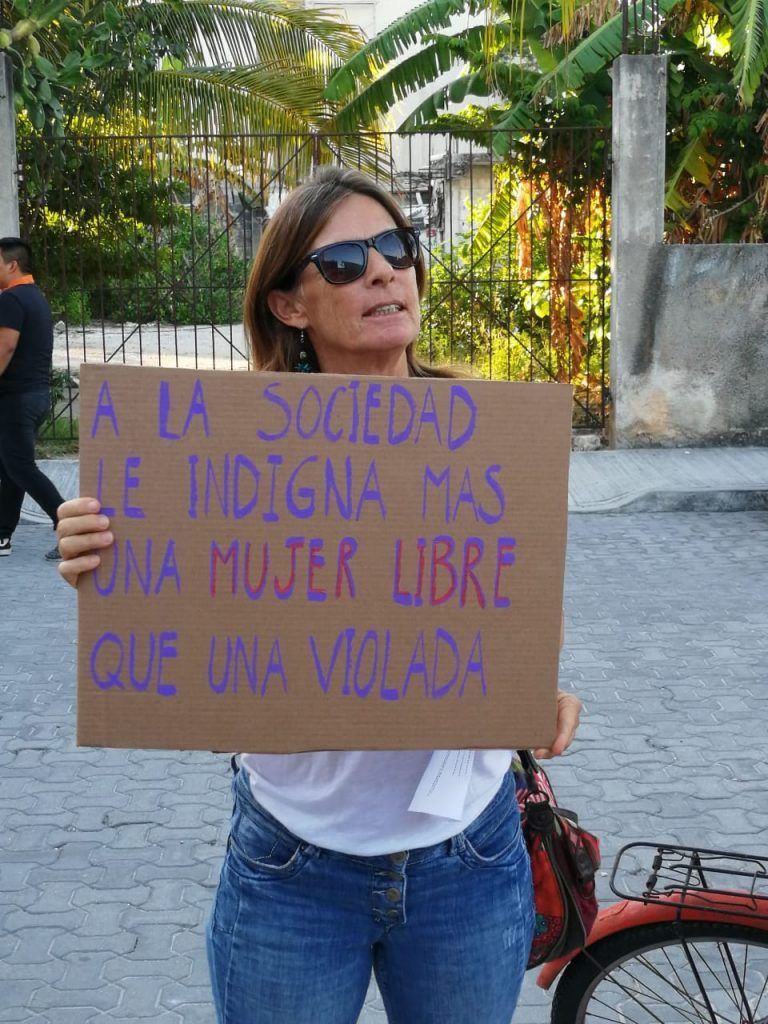 A LA SOCIEDAD
LE INDIGNA MAS
UNA MUJER LIBRE
QUE UNA VIOLADA